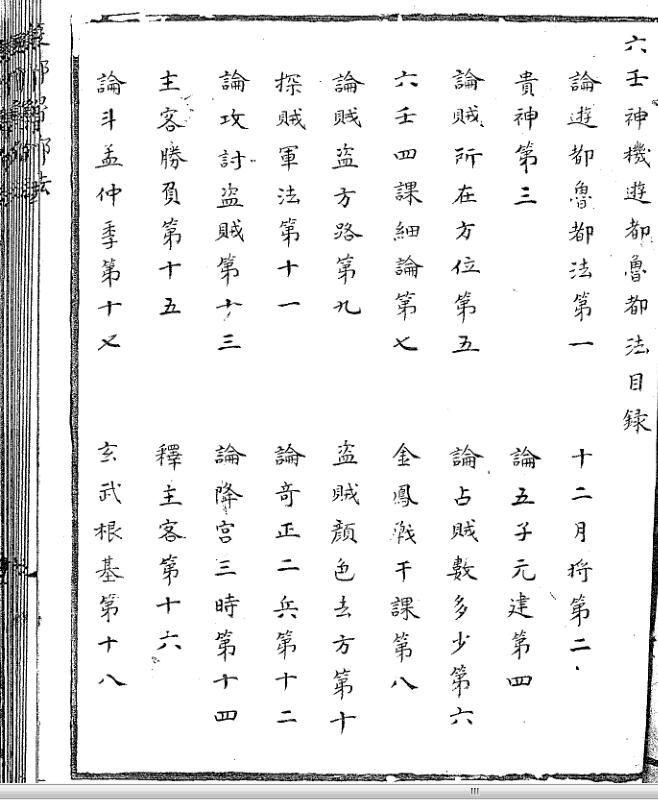 六壬神機遊都魯都法目録
論遊都魯都法第一 十二月将第二
貴神第三 論五子元建第四
論賊所在方位第五 論占賊數多少第六
六壬四課細論第七 金鳳戰干課第八
論賊盜方路第九 盜賊顏色去方第十
探賊軍法第十一 論奇正二兵第十二
論攻討盜賊第十三 論降宮三時第十四
主客勝負第十五 釋主客第十六
論斗孟仲季第十七 玄武根基第十八